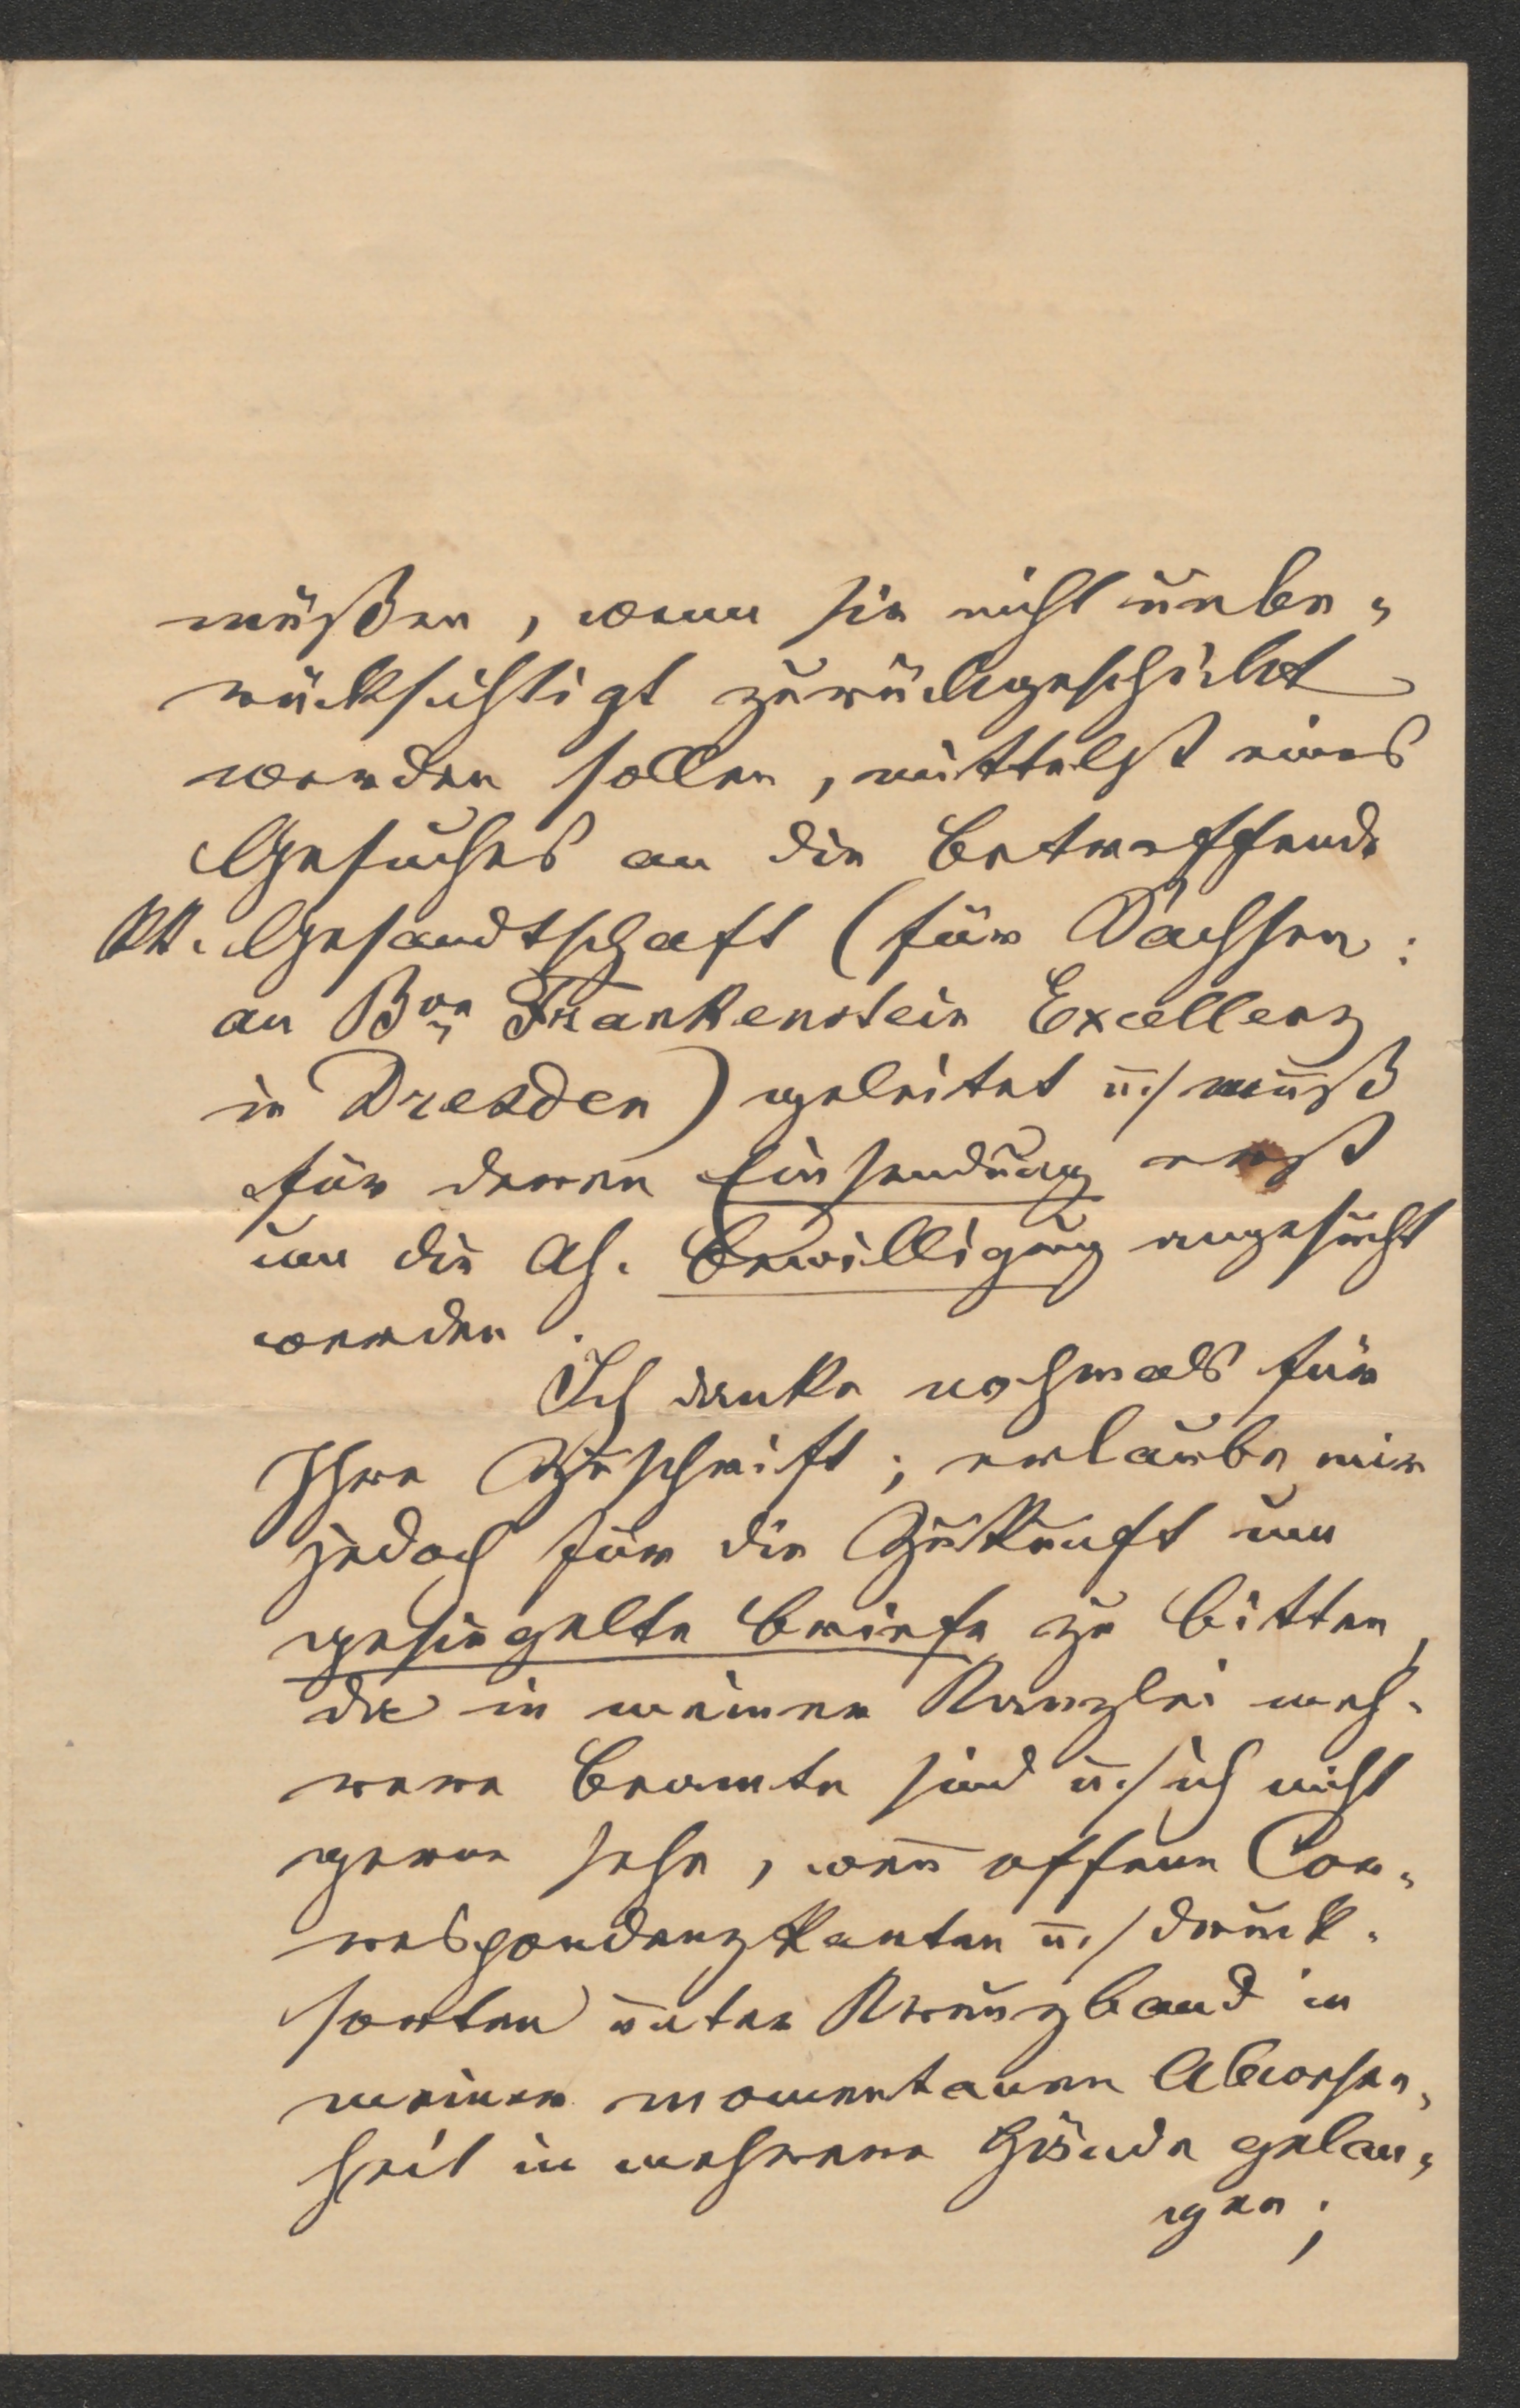 müßen, wenn sie nicht unbe„
rücksichtigt zurückgeschickt
werden sollen, mittelst eines
Gesuches an die betreffende
KK. Gesandtschaft (für Sachsen:
an Bon Frankenstein Excellenz
in Dresden) geleitet u./ muß
für deren Einsendung erst
um die Ah. Bewilligung angesucht
werden.
Ich danke nochmals für
Ihre Zuschrift; erlaube mir
jedoch für die Zukunft um
gesiegelte Briefe zu bitten,
da in meiner Kanzlei meh-
rere Beamte sind u./ ich nicht
gerne sehe, wenn offene Cor„
respondenzkarten u./ Druck-
sorten unter Kreuzband in
meiner momentanen Abwesen„
heit in mehrere Hände gelan„
gen;